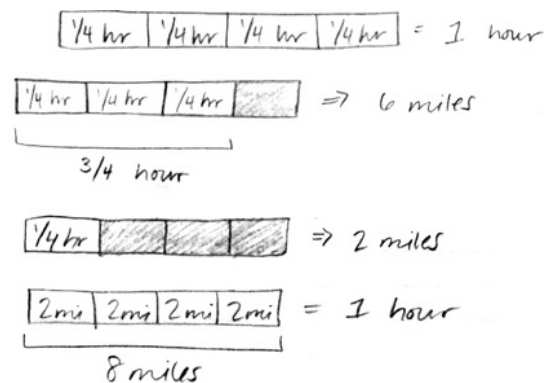 1/4 hr 1/4 hr 1/4 hr 1/4 hr = 1 hour
1/4 hr 1/4 hr 1/4 hr ⇒ 6 miles
3/4 hour
1/4 hr ⇒ 2 miles
2mi 2mi 2mi 2mi = 1 hour
8 miles